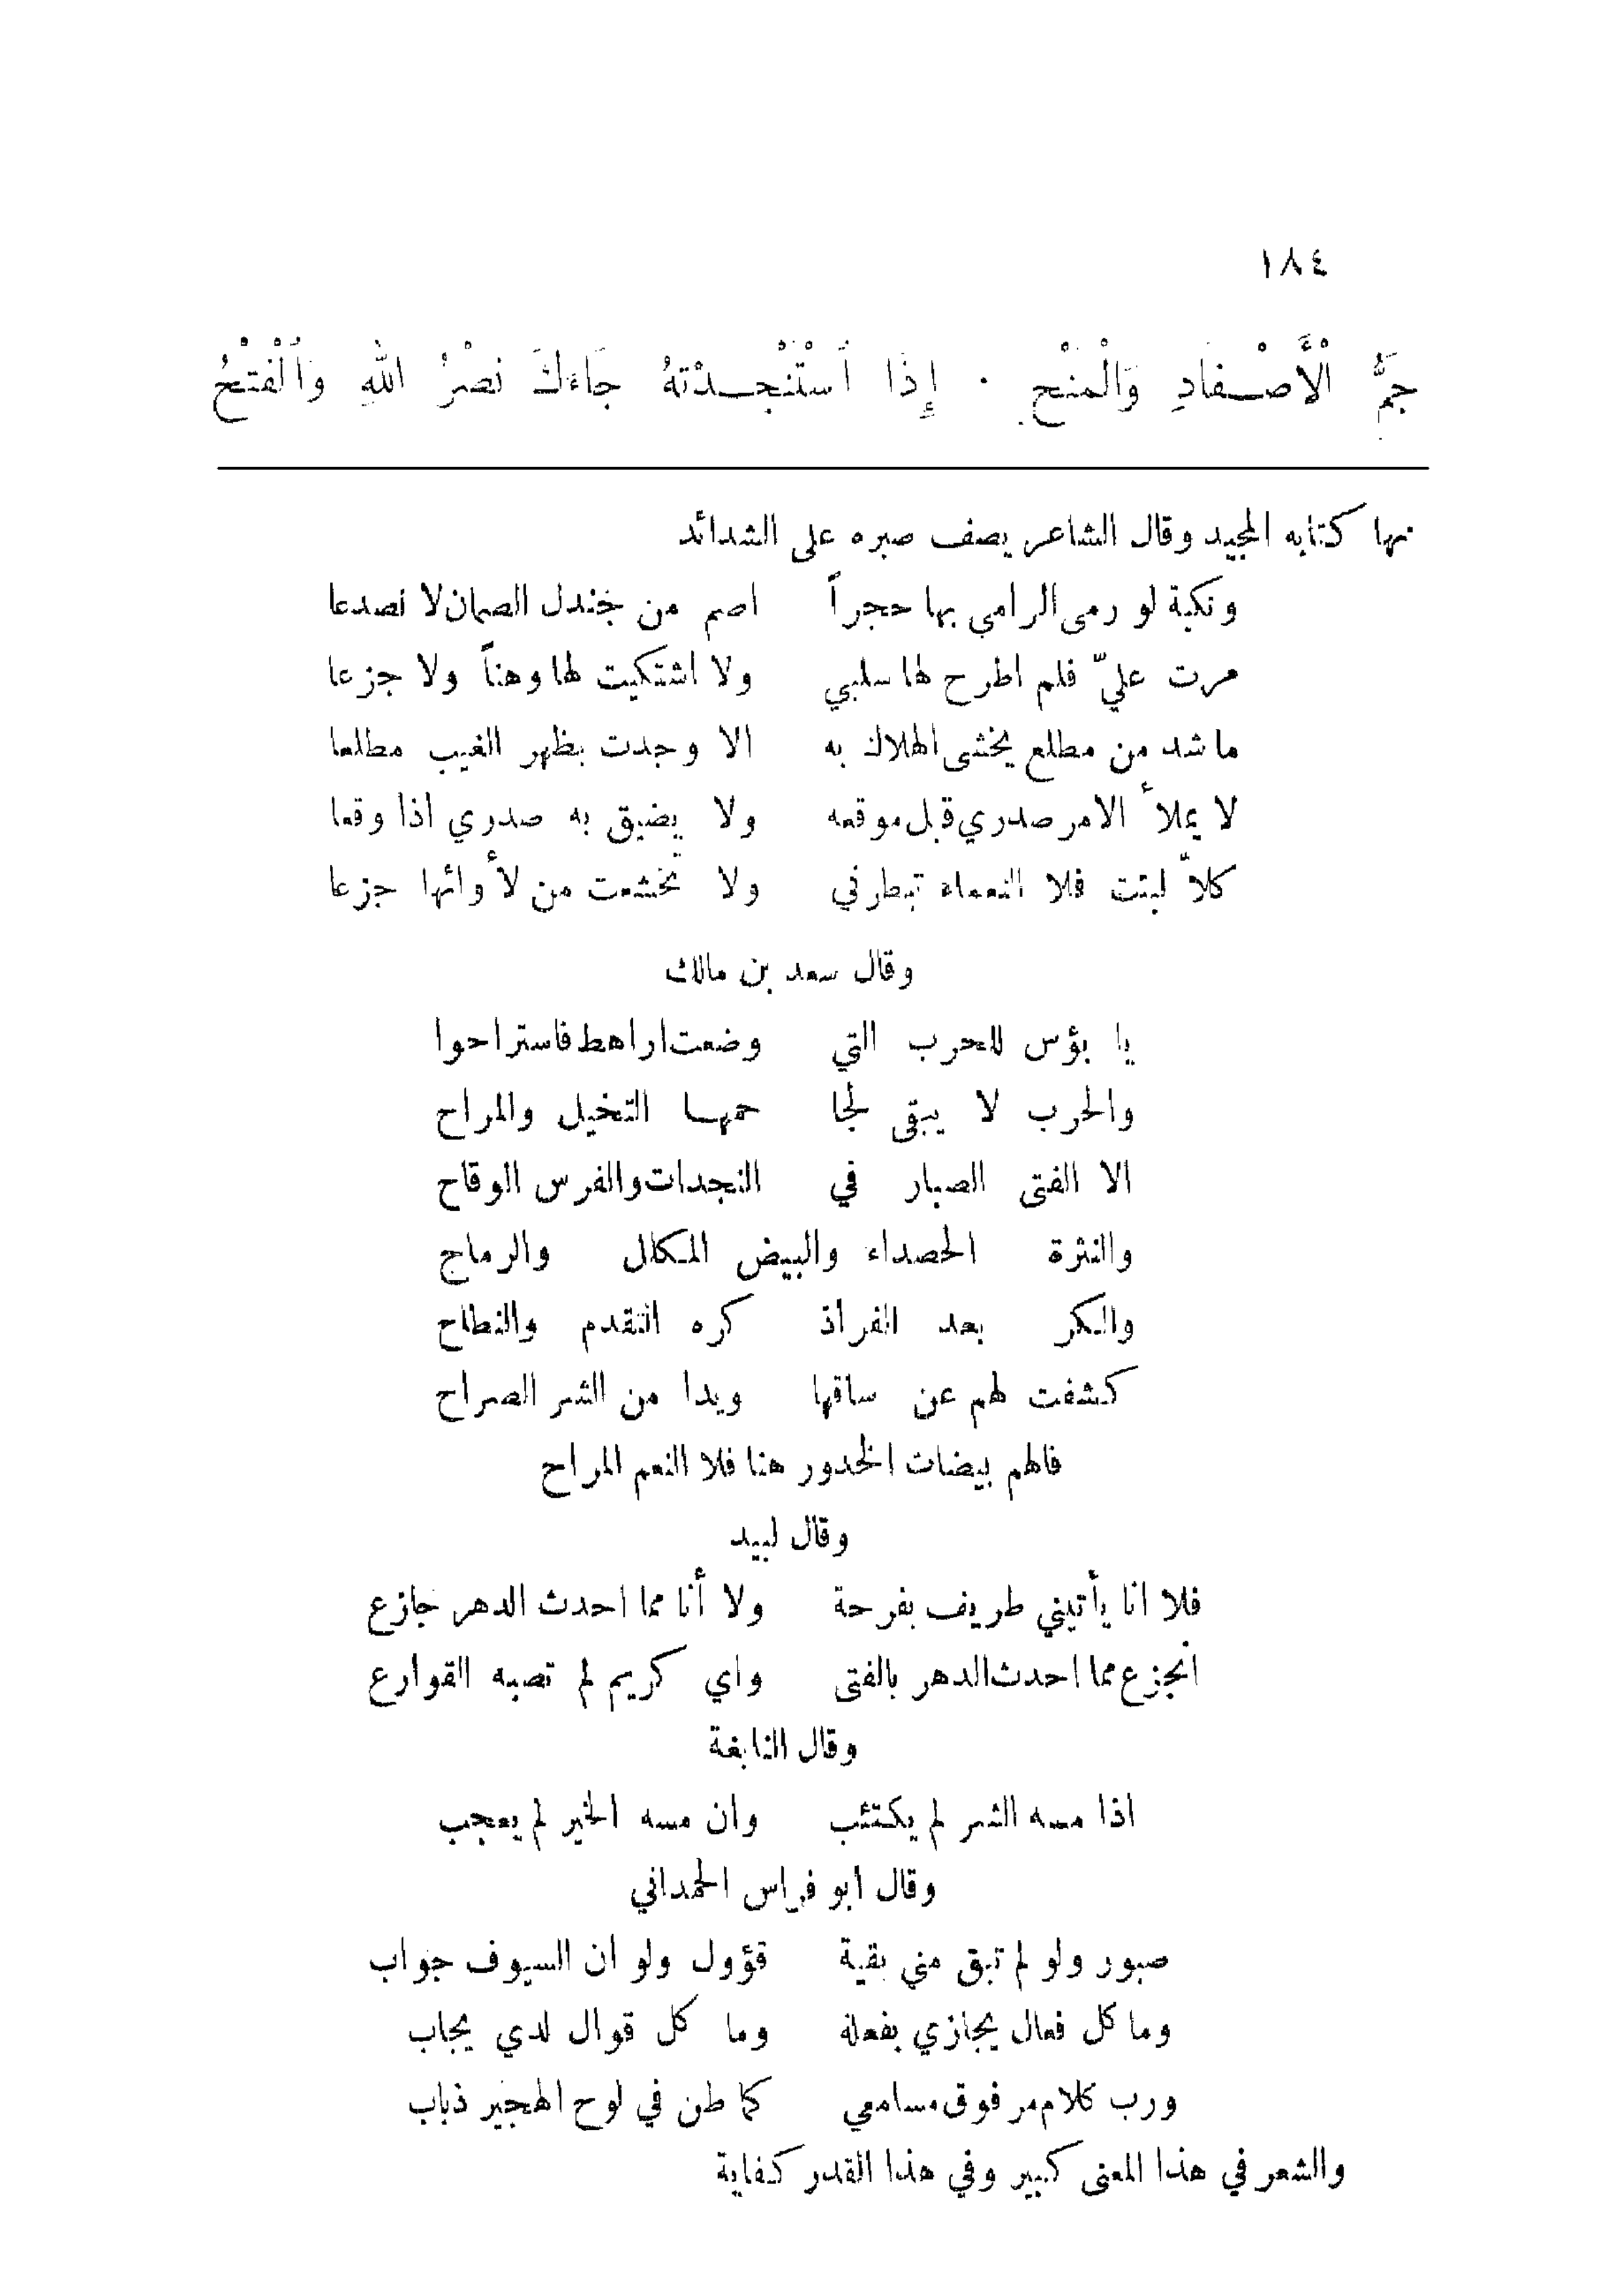 ١٨٤
جَمُّ الْأَصْفَادِ وَالْمَنْحِ . إِذَا اَسْتَنْجَدْتَهُ جَاءَكَ نَصْرُ اللهِ وَاَلْفَتْحُ
بها كتابه المجيد وقال الشاعر يصف صبره على الشدائد
ونكبة لو رمى الرامي بها حجراً اصم من جندل الصمان لا نصدعا
مرت عليّ فلم اطرح لها سلبي ولا اشتكيت لها وهناً ولا جزعا
ما شد من مطلع يخشى الهلاك به الا وجدت بظهر الغيب مطلعا
لا يملأ الامر صدري قبل موقعه ولا يضيق به صدري اذا وقعا
كلاّ لبثت فلا النعماء تبطرني ولا تخشعت من لأوائها جزعا
وقال سعد بن مالك
يا بؤس للحرب التي وضعت اراهط فاستراحوا
والحرب لا يبقى لجا حمها التخيل والمراح
الا الفتى الصبار في النجدات والفرس الوقاح
والنثرة الحصداء والبيض المكلل والرماح
والكر بعد الفر اذ كره التقدم والنطاح
كشفت لهم عن ساقها وبدا من الشر الصراح
فالهم بيضات الخدور هنا فلا النعم المراح
وقال لبيد
فلا انا يأتيني طريف بفرحة ولا أنا مما احدث الدهر جازع
اتجزع مما احدث الدهر بالفتى واي كريم لم تصبه القوارع
وقال النابغة
اذا مسه الشر لم يكتئب وان مسه الخير لم يعجب
وقال ابو فراس الحمداني
صبور ولو لم تبق مني بقية قؤول ولو ان السيوف جواب
وما كل فعال يجازي بفعله وما كل قوال لدي يجاب
ورب كلام مر فوق مسامعي كما طن في لوح الهجير ذباب
والشعر في هذا المعنى كبير وفي هذا القدر كفاية